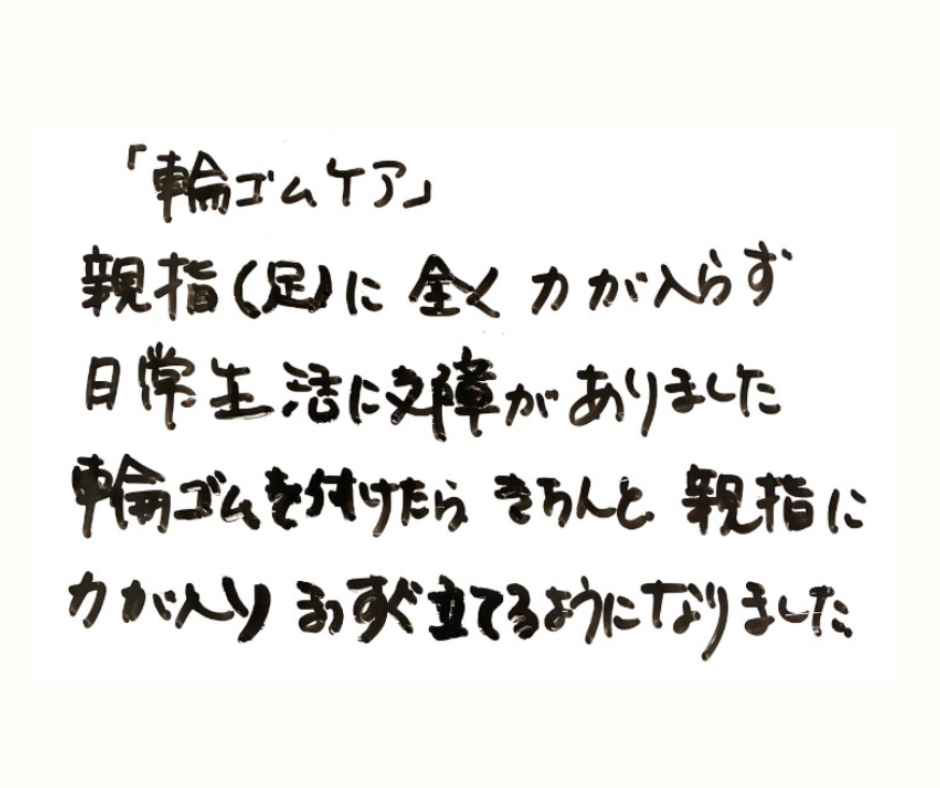 「輪ゴムケア」
親指(足)に全く力が入らず
日常生活に支障がありました
輪ゴムを付けたらきちんと親指に
力が入りまっすぐ立てるようになりました